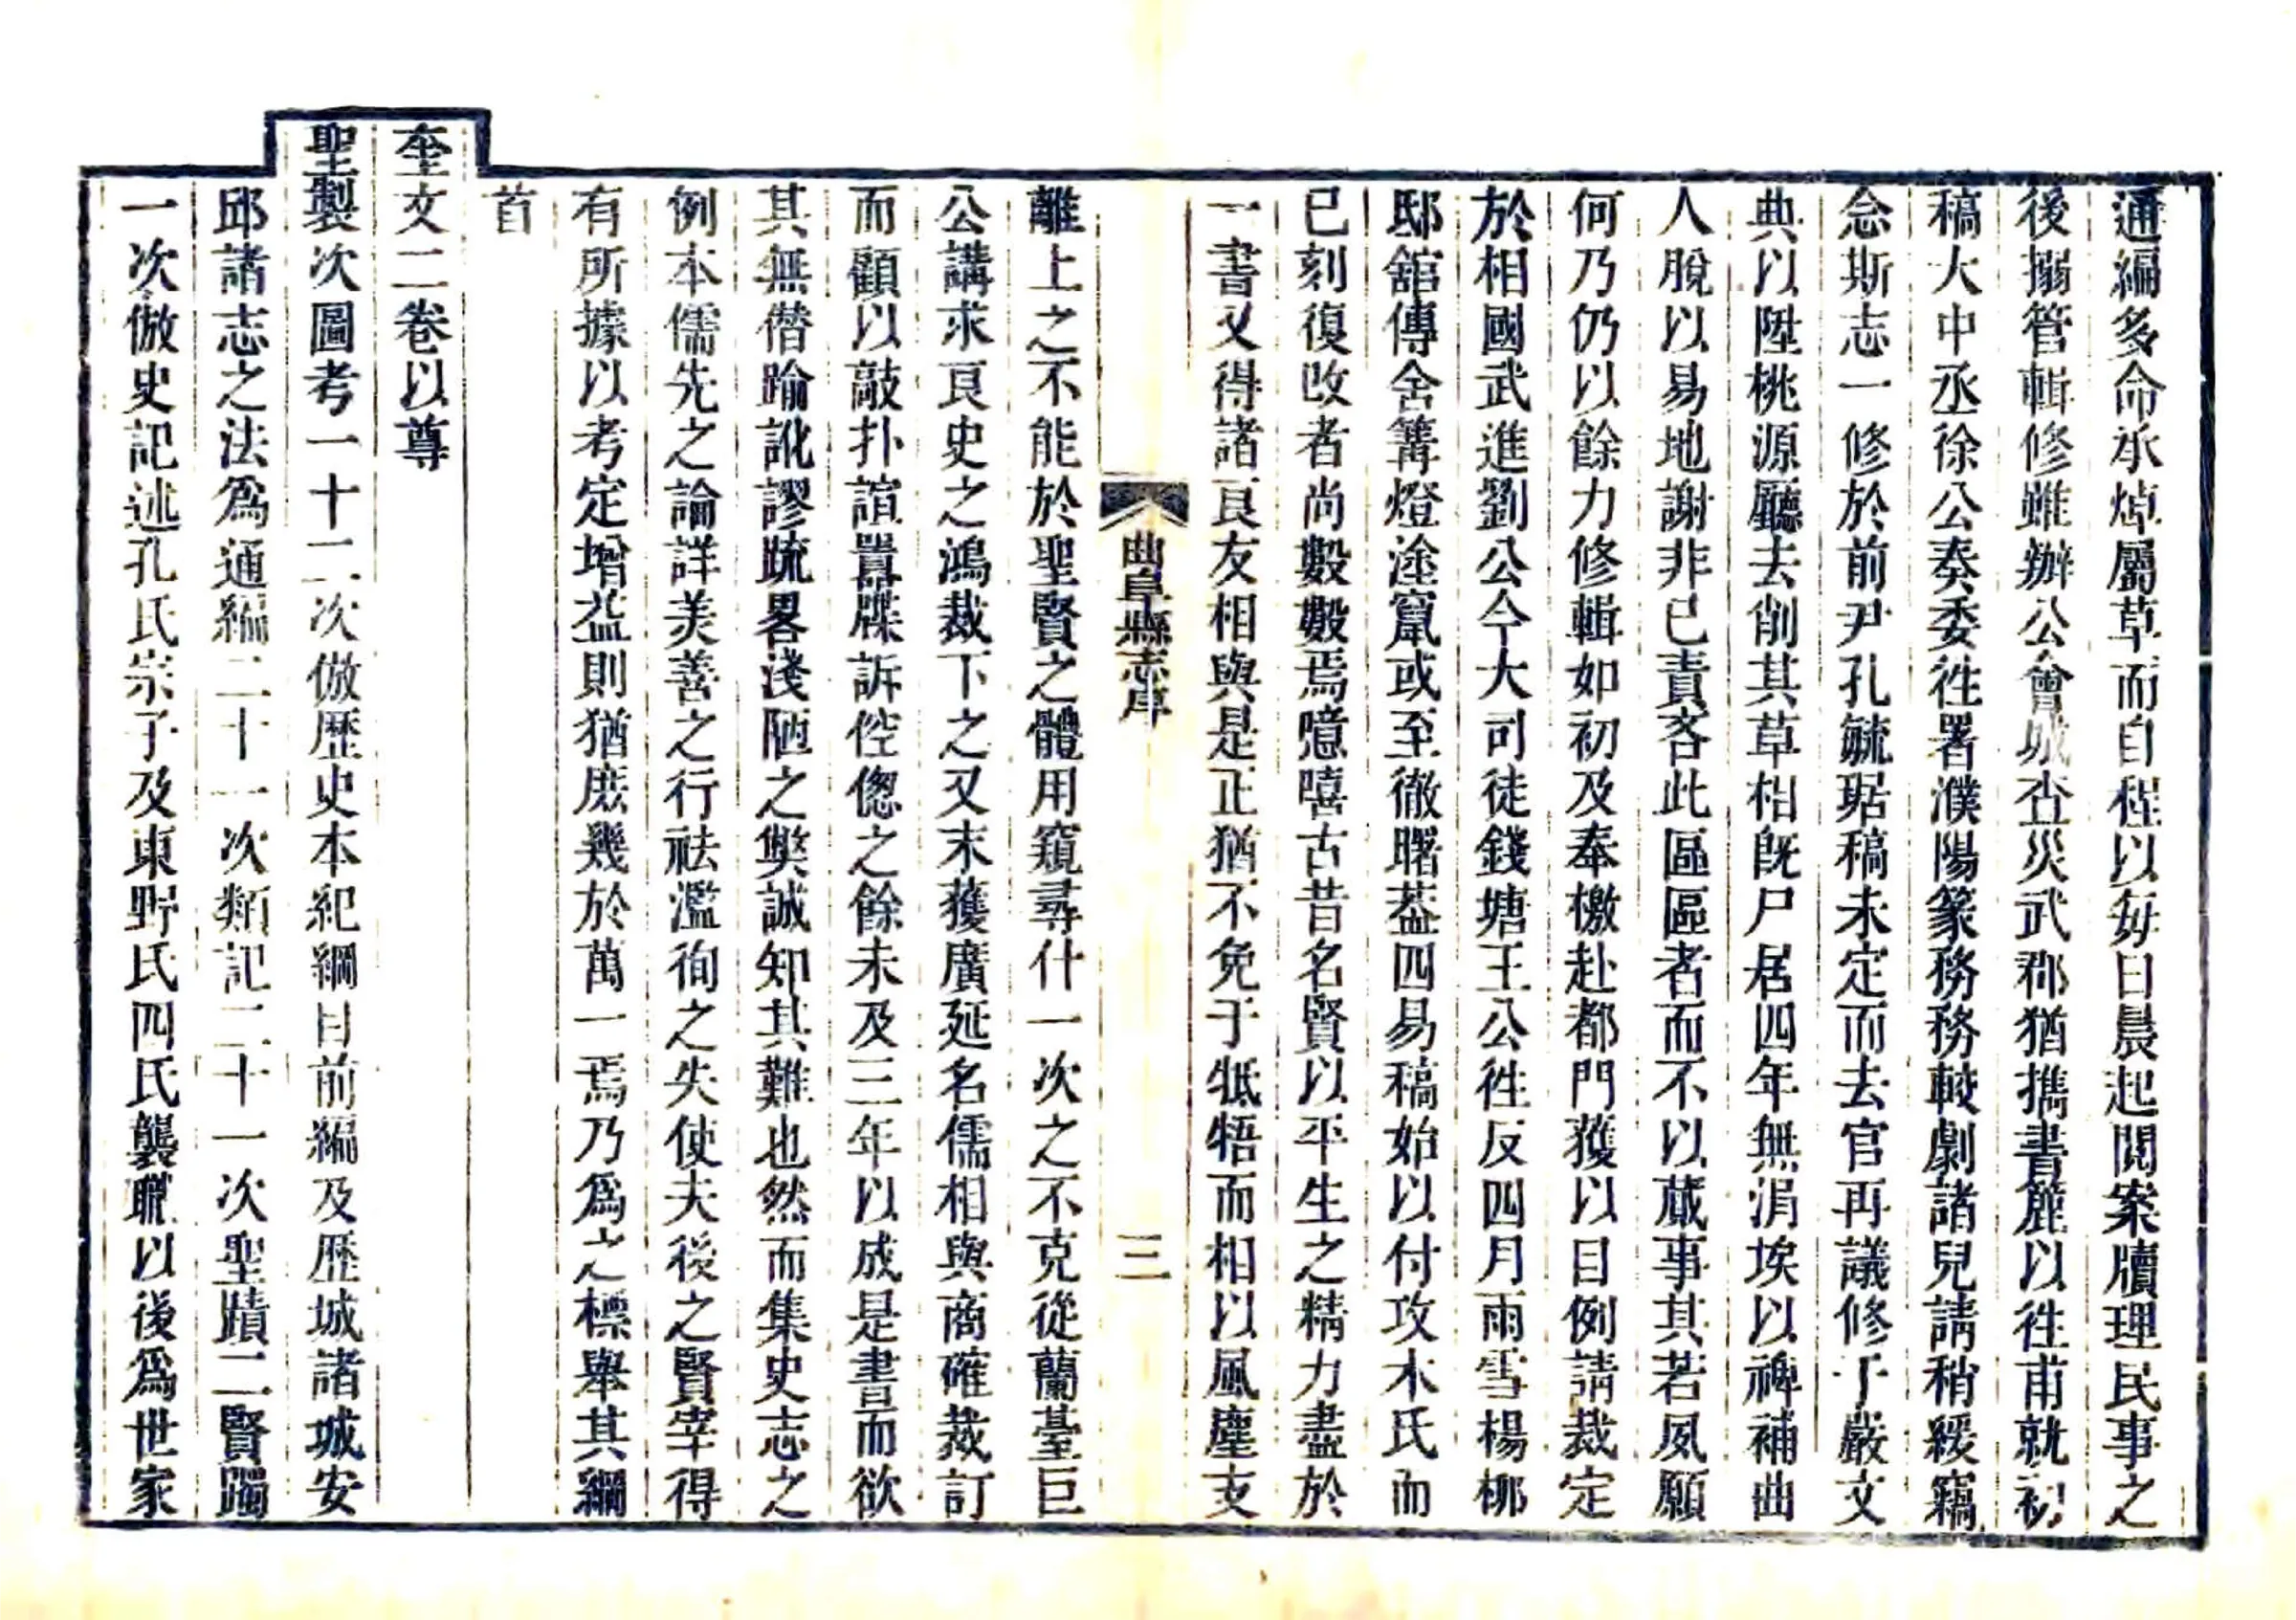 通編多命承焯屬草而自程以每日晨起閱案牘理民事之
後搦管輯修雖辦公會城查災武郡猶攜書簏以徃甫就初
稿大中丞徐公奏委徃署濮陽篆務務較劇諸兒請稍緩竊
念斯志一修於前尹孔毓琚稿未定而去官再議修于嚴文
典以陞桃源廳去削其草相旣尸居四年無涓埃以裨補曲
人脫以易地謝非已責吝此區區者而不以蕆事其若夙願
何乃仍以餘力修輯如初及奉檄赴都門獲以目例請裁定
於相國武進劉公今大司徒錢塘王公徃反四月雨雪楊栁
邸舘傳舍篝燈塗竄或至徹曙葢四易稿始以付攻木氏而
已刻復攺者尚數數焉噫嘻古昔名賢以平生之精力盡於
一書又得諸良友相與是正猶不免于牴牾而相以風塵支
曲阜縣志序
三
離上之不能於聖賢之體用窺尋什一次之不克從蘭臺巨
公講求良史之鴻裁下之又未獲廣延名儒相與商確裁訂
而顧以敲扑諠囂牒訴倥偬之餘未及三年以成是書而欲
其無僭踰訛謬䟽畧淺陋之獘誠知其難也然而集史志之
例本儒先之論詳美善之行祛濫徇之失使夫後之賢宰得
有所據以考定增益則猶庶幾於萬一焉乃爲之標舉其綱
首
奎文二卷以尊
聖製次圖考一十二次倣歷史本紀綱目前編及歷城諸城安
邱諸志之法爲通編二十一次類記二十一次聖蹟二賢躅
一次倣史記述孔氏宗子及東野氏四氏襲職以後爲世家